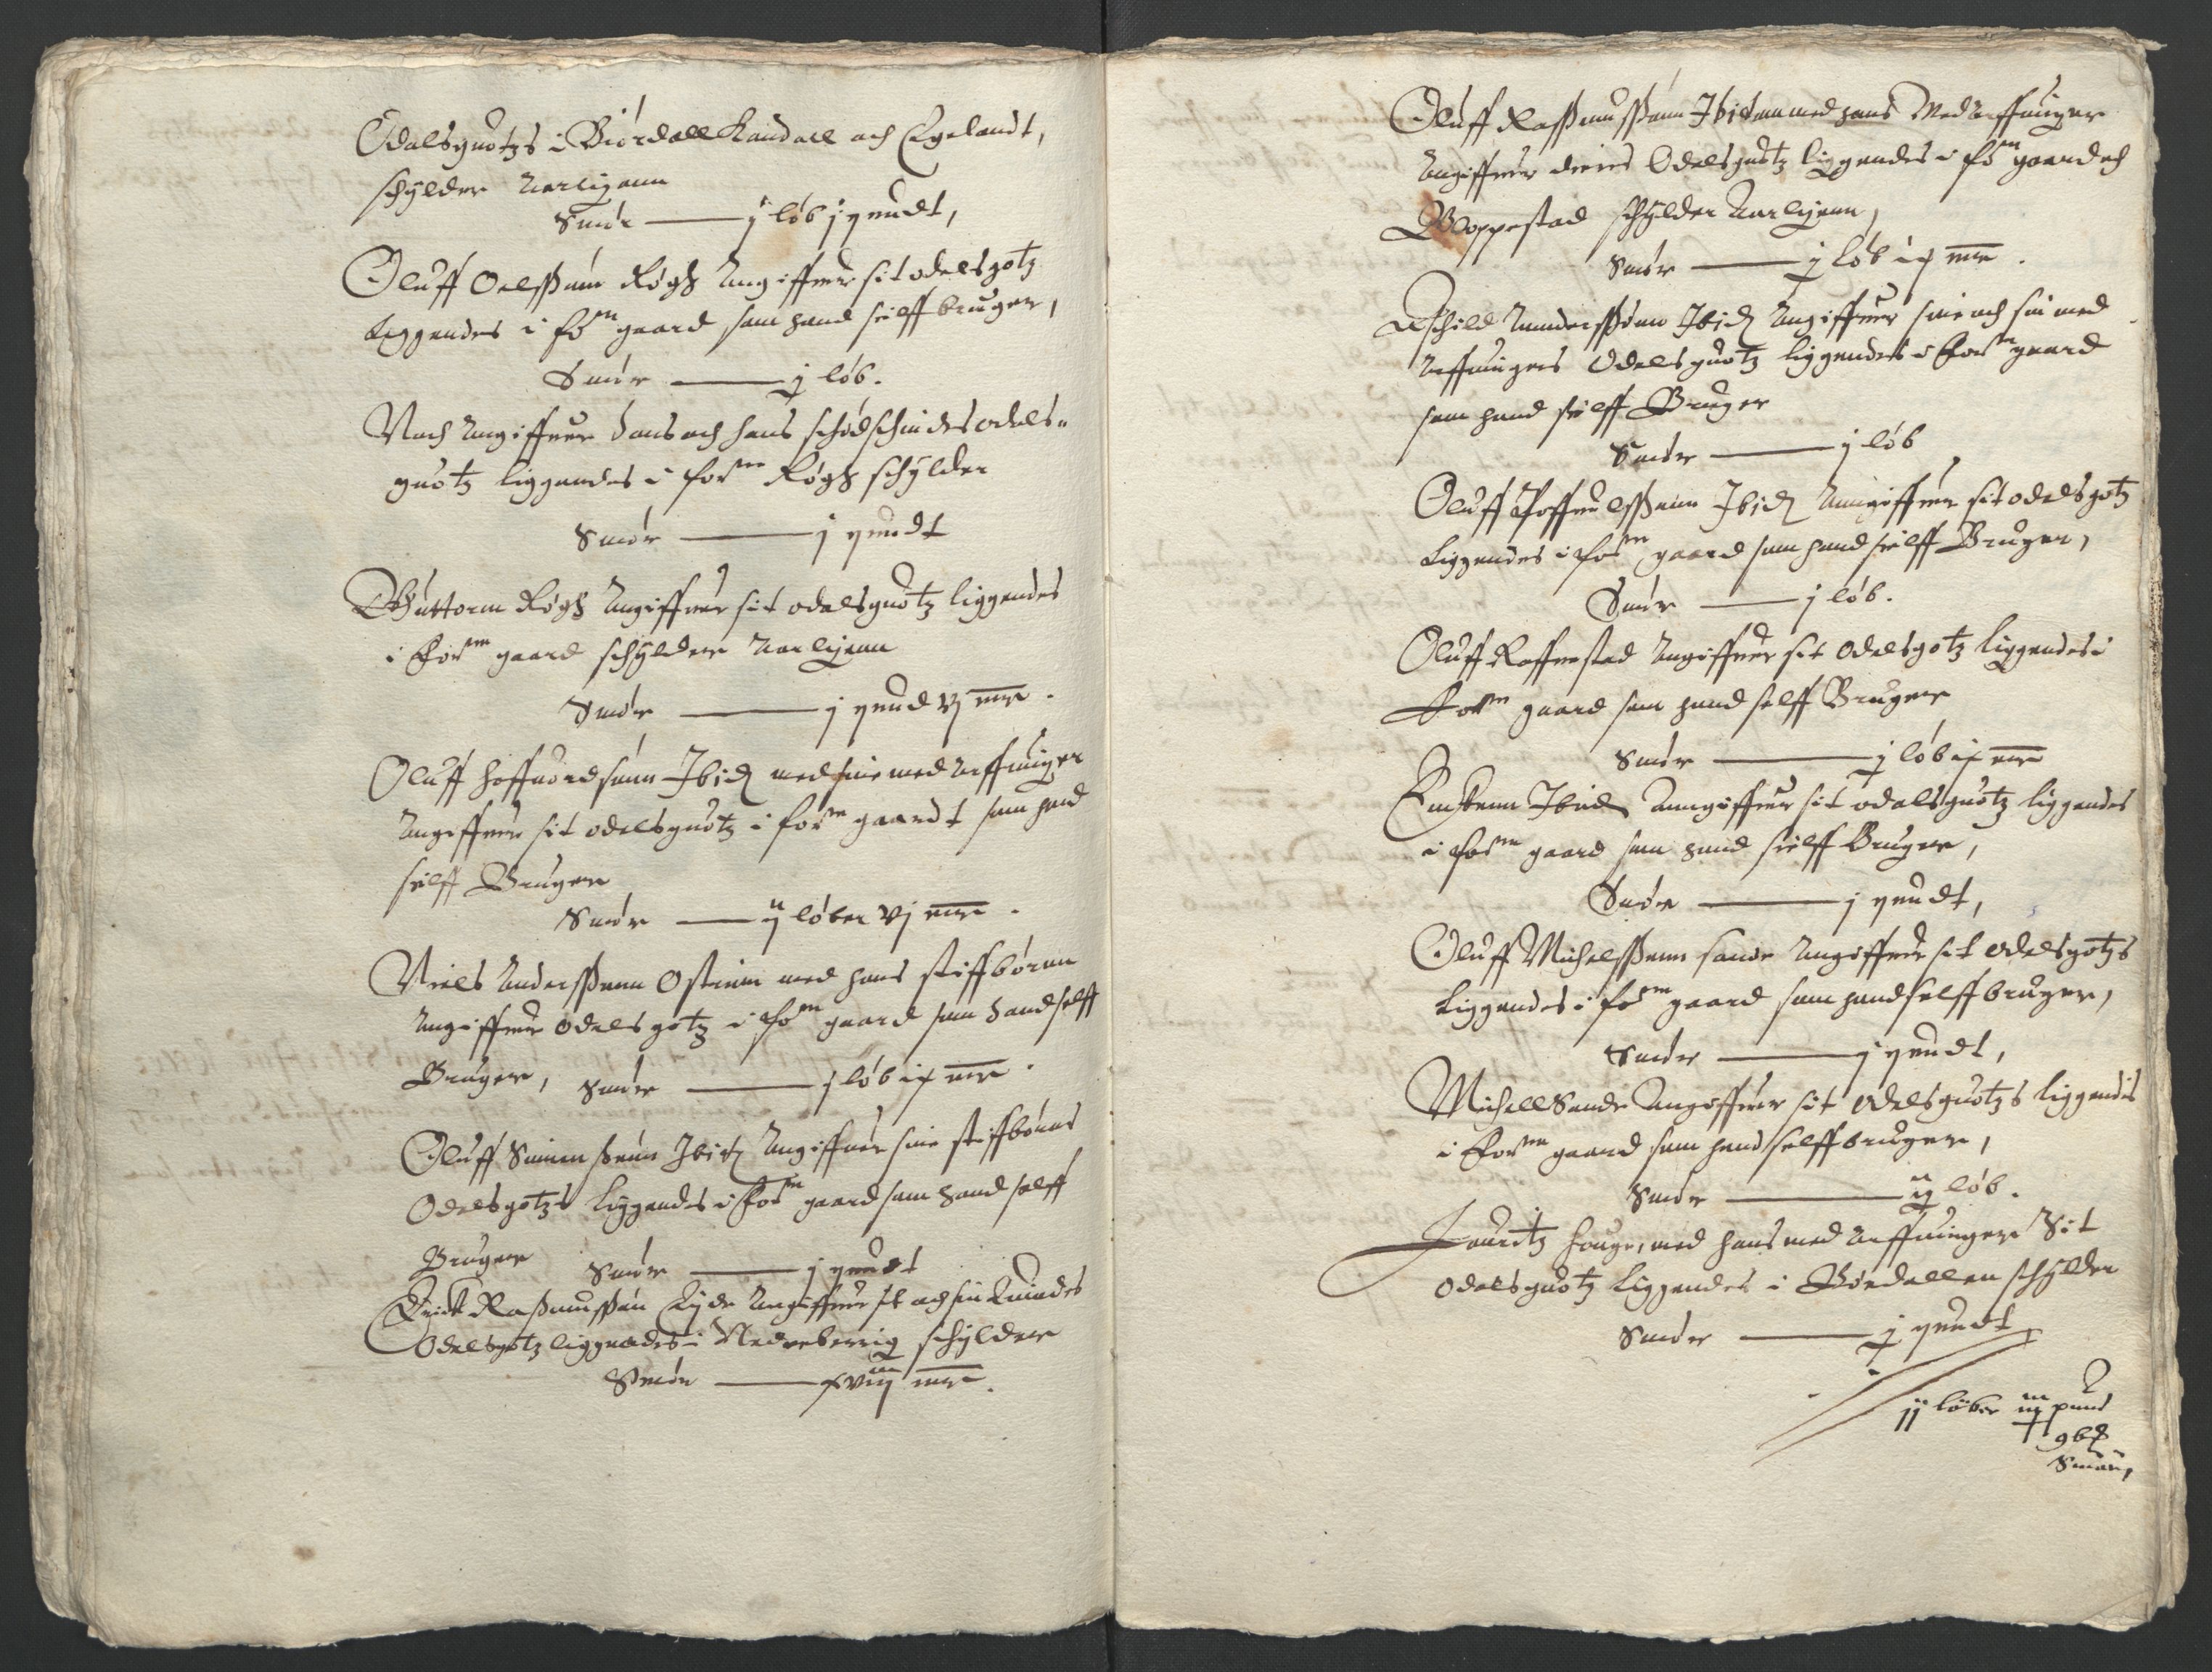 Odalsguotzs i Biördall Kandall och Egelandt,
schylder Aarligenn
Smör —— j löb j pundt,
Oluff Oelssøun Røgh Angiffuer sit odelsgotz
Liggendes i for:ne gaard som hand sielff bruger,
Smör —— j löb.
Noch Angiffuer hans och hans odels-
guotz liggendes i for:ne Røgh schylder
Smör —— j pundt
Guttorm Røgh Angiffuer sit odalsguotz liggendes
i for:ne gaard schylder Aarligenn
Smör —— j pund vj mrc.
Oluff hoffuordsönn Ibid med sine med Arffuinger
Angiffuer sit odelsguotz i for:ne gaardt som hand
sielff Bruger
Smör —— ij löber vj mrc.
Niels Anderssenn Osteim med hans stiffbörnn
Angiffuer Odelsgotz i for:ne gaard som hand selff
Bruger, Smör —— j löb ix mrc.
Oluff Simenssenn Ibid Angiffuer sine stiffbörns
Odelsgotz Liggendes i for:ne gaard som hand selff
Bruger Smör —— j pundt
Erick Rasmussøn Angiffuer sit och sin quindes
Odelsgotz liggendes i Nedreberrig schylder
Smör —— xviij mrc.
Oluff Rassmussønn Ibidem med hans Med Arffuinger
Angiffuer dieris Odelsguotz liggendes i for:ne gaard och
Gloppestad schylder Aarligenn,
Smör —— j löb ix mrc.
Aschild Aunderssønn Ibid Angiffuer sine och sin med
Arffuingers Odelsguotz liggendes i for:ne gaard
som hand sielff Bruger
Smör —— j löb
Oluff Poffuelssønn Ibid Anngiffuer sit odelsgotz
Liggendes i for:ne gaard som hand sielff Bruger,
Smör —— j löb.
Oluff Roffuestad Angiffuer sit Odelsgotz liggendes i
for:ne gaard som hand selff Bruger
Smör —— j löb ix mrc
Ibid Anngiffuer sit odalsguotz liggendes
i for:ne gaard som hand sielff Bruger,
Smör —— j pundt,
Oluff Michelssenn Sande Angiffuer sit odelsgotzs
Liggendes i for:ne gaard som hand selff bruger,
Smör —— j pundt,
Michell Sande Angiffuer sit odelsguotzs liggendis
i for:ne gaard som hand selff bruger,
Smör —— ij löb.
Lauritz houge, med hans med Arffuinger Sit
odelsguotz liggendes i Bördallen schylder
Smör —— j pundt
ij löber iij pund
Smör,